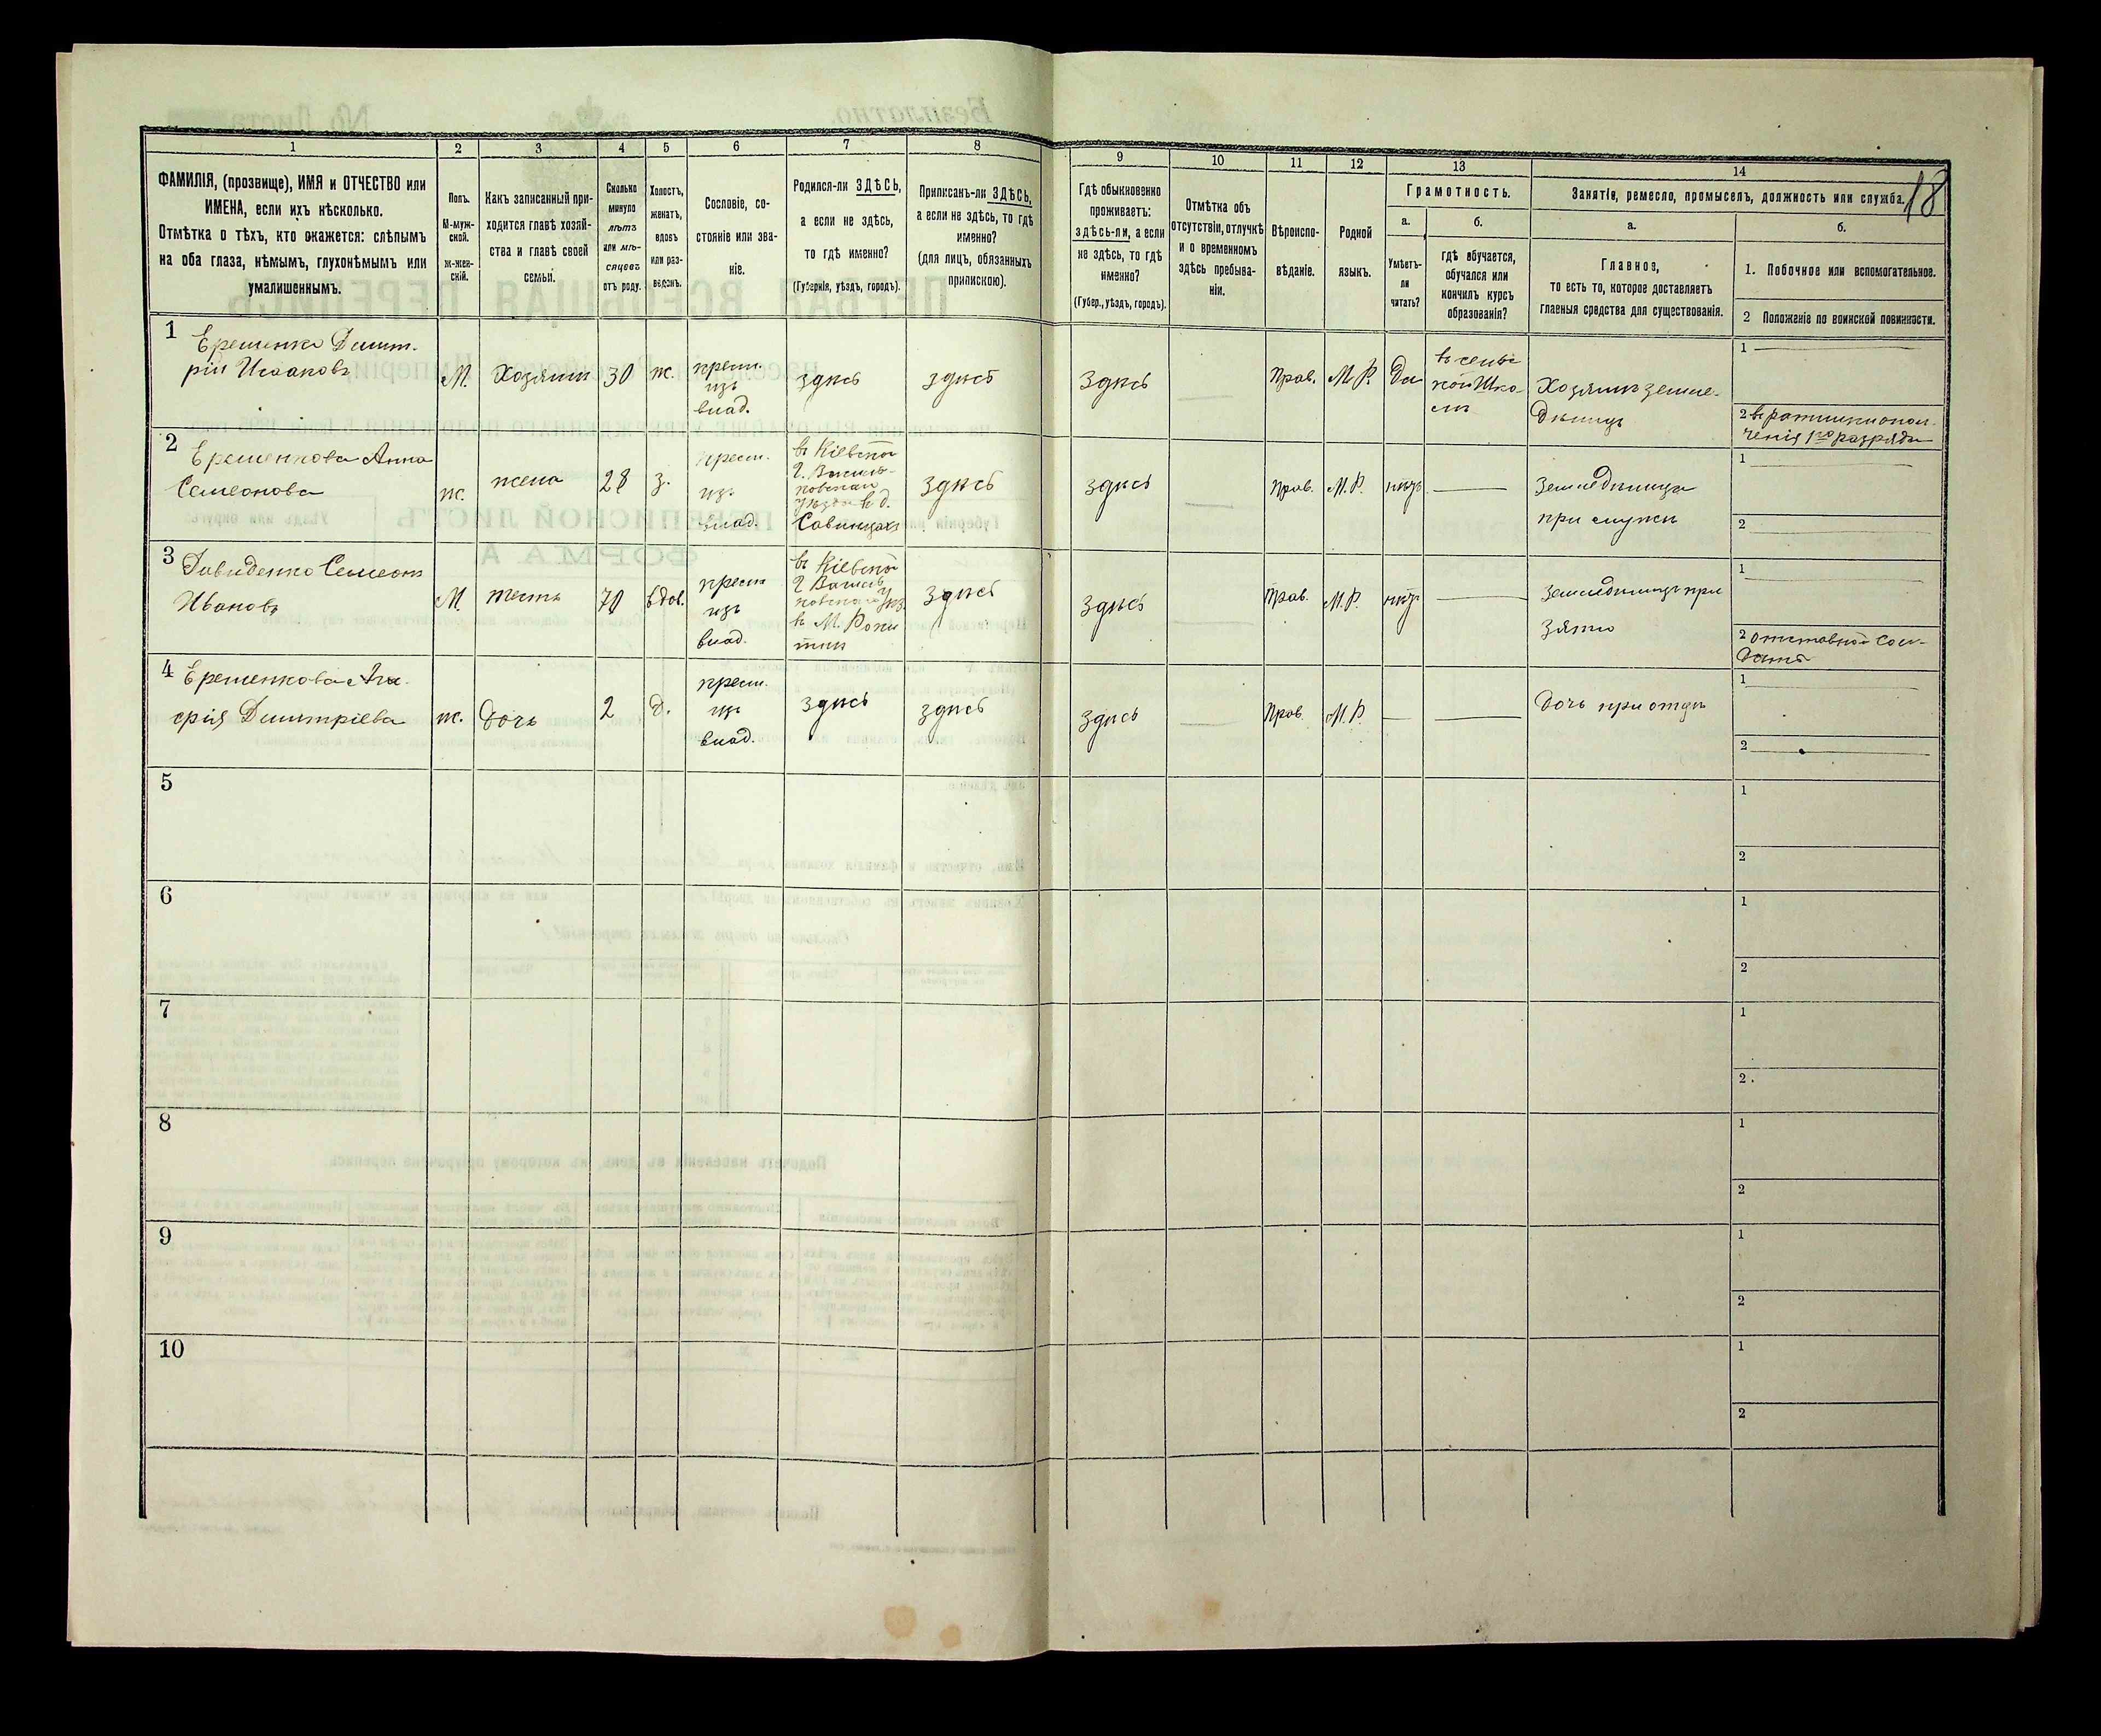 18
1
2
3
4
5
6
7
8
9
10
11
12
13
14
ФАМИЛІЯ, (прозвище), ИМЯ и ОТЧЕСТВО или
ИМЕНА, если ихъ нѣсколько.
Отмѣтка о тѣхъ, кто окажется: слѣпымъ
на оба глаза, нѣмымъ, глухонѣмымъ или
умалишеннымъ.
Полъ.
М-муж-
ской.
ж-жен-
скій.
Какъ записанный при-
ходится главѣ хозяй-
ства и главѣ своей
семьи.
Сколько
минуло
лѣтъ
или мѣ-
сяцевъ
отъ роду.
Холостъ,
женатъ,
вдовъ
или раз-
веденъ.
Сословіе, со-
стояніе или зва-
ніе.
Родился-ли ЗДѢСЬ,
а если не здѣсь,
то гдѣ именно?
(Губернія, уѣздъ, городъ).
Приписанъ-ли ЗДѢСЬ,
а если не здѣсь, то гдѣ
именно?
(для лицъ, обязанныхъ
припискою).
Гдѣ обыкновенно
проживаетъ:
здѣсь-ли, а если
не здѣсь, то гдѣ
именно?
(Губер., уѣздъ, городъ).
Отмѣтка объ
отсутствіи, отлучкѣ
и о временномъ
здѣсь пребыва-
ніи.
Вѣроиспо-
вѣданіе.
Родной
языкъ.
Грамотность.
а.
б.
Умѣетъ-
ли
читать?
гдѣ обучается,
обучался или
кончилъ курсъ
образованія?
Занятіе, ремесло, промыселъ, должность или служба.
а.
б.
Главное,
то есть то, которое доставляетъ
главныя средства для существованія.
1. Побочное или вспомогательное.
2 Положеніе по воинской повинности.
1
Еременко Дмит-
рій Исааковъ
М.
Хозяинъ
30
ж.
крест.
изъ
влад.
здѣсь
здѣсь
здѣсь
Прав.
М.Р.
Да
въ сельс
кой Шко-
лѣ
Хозяинъ земле-
дѣлецъ
1
2 въ ратники опол-
ченія 1го разряда
2
Еременкова Анна
Семеонова
ж.
жена
28
з.
крест.
изъ
влад.
въ Кіевской
г. Василь-
ковскаго
уѣзда в д.
Савинцахъ
здѣсь
здѣсь
Прав.
М.Р.
нѣтъ
Земледѣлица
при мужѣ
1
2
3
Давиденко Семеонъ
Ивановъ
М.
тесть
70
вдов.
крест
изъ
влад.
въ Кіевской
г Василь
ковскаго Уѣз.
в М. Роки
тнѣ
здѣсь
здѣсь
Прав.
М.Р.
нѣтъ
Земледѣлецъ при
зятю
1
2 отставной сол-
датъ
4
Еременкова
Дмитріева
ж.
дочь
2
д.
крест.
изъ
влад.
здѣсь
здѣсь
здѣсь
Прав.
М.Р.
Дочь при отцѣ
1
2
5
1
2
6
1
2
7
1
2
8
1
2
9
1
2
10
1
2